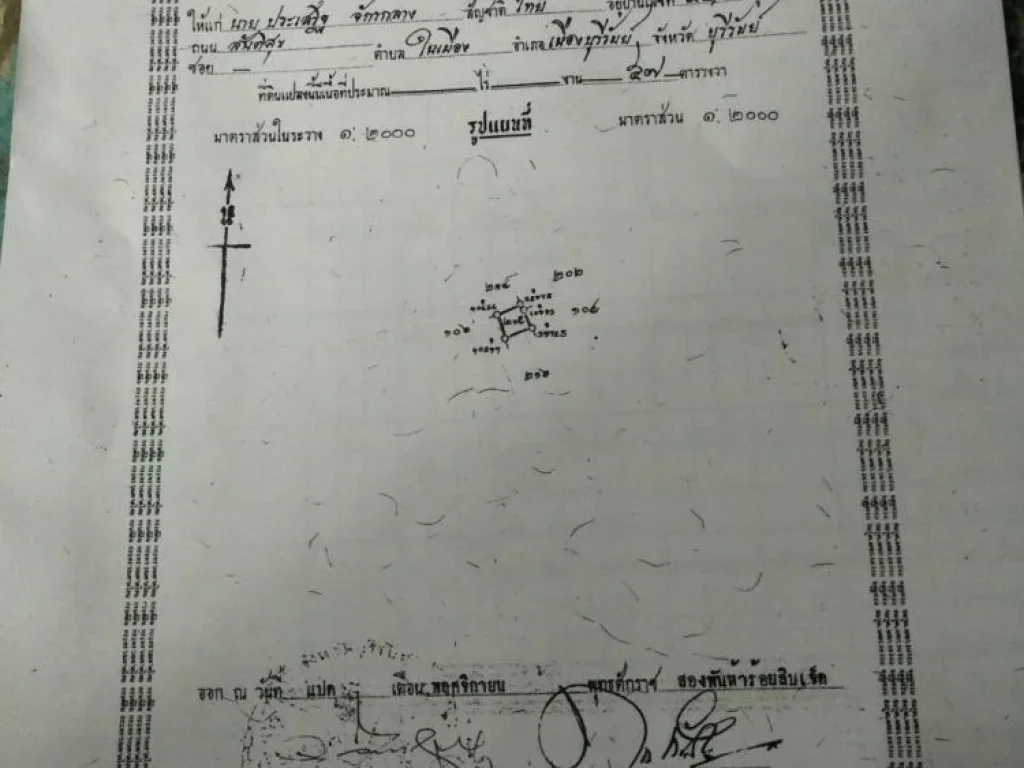 ให้แก่ นาย ประเสริฐ จักากลาง สัญชาติ ไทย อยู่บ้านเลขที่
ถนน สันติสุข ตำบล ในเมือง อำเภอ เมืองบุรีรัมย์ จังหวัด บุรีรัมย์
ซอย —
ที่ดินแปลงนี้เนื้อที่ประมาณ ไร่ งาน ๒๗ ตารางวา
มาตราส่วนในระวาง ๑:๒๐๐๐ รูปแผนที่ มาตราส่วน ๑:๒๐๐๐
น
๒๐๒
๒๑๔
๑๐๔
๒๑๕
๑๐๖
๒๑๖
ออก ณ วันที่ แปด เดือน พฤศจิกายน พุทธศักราช สองพันห้าร้อยสิบเจ็ด